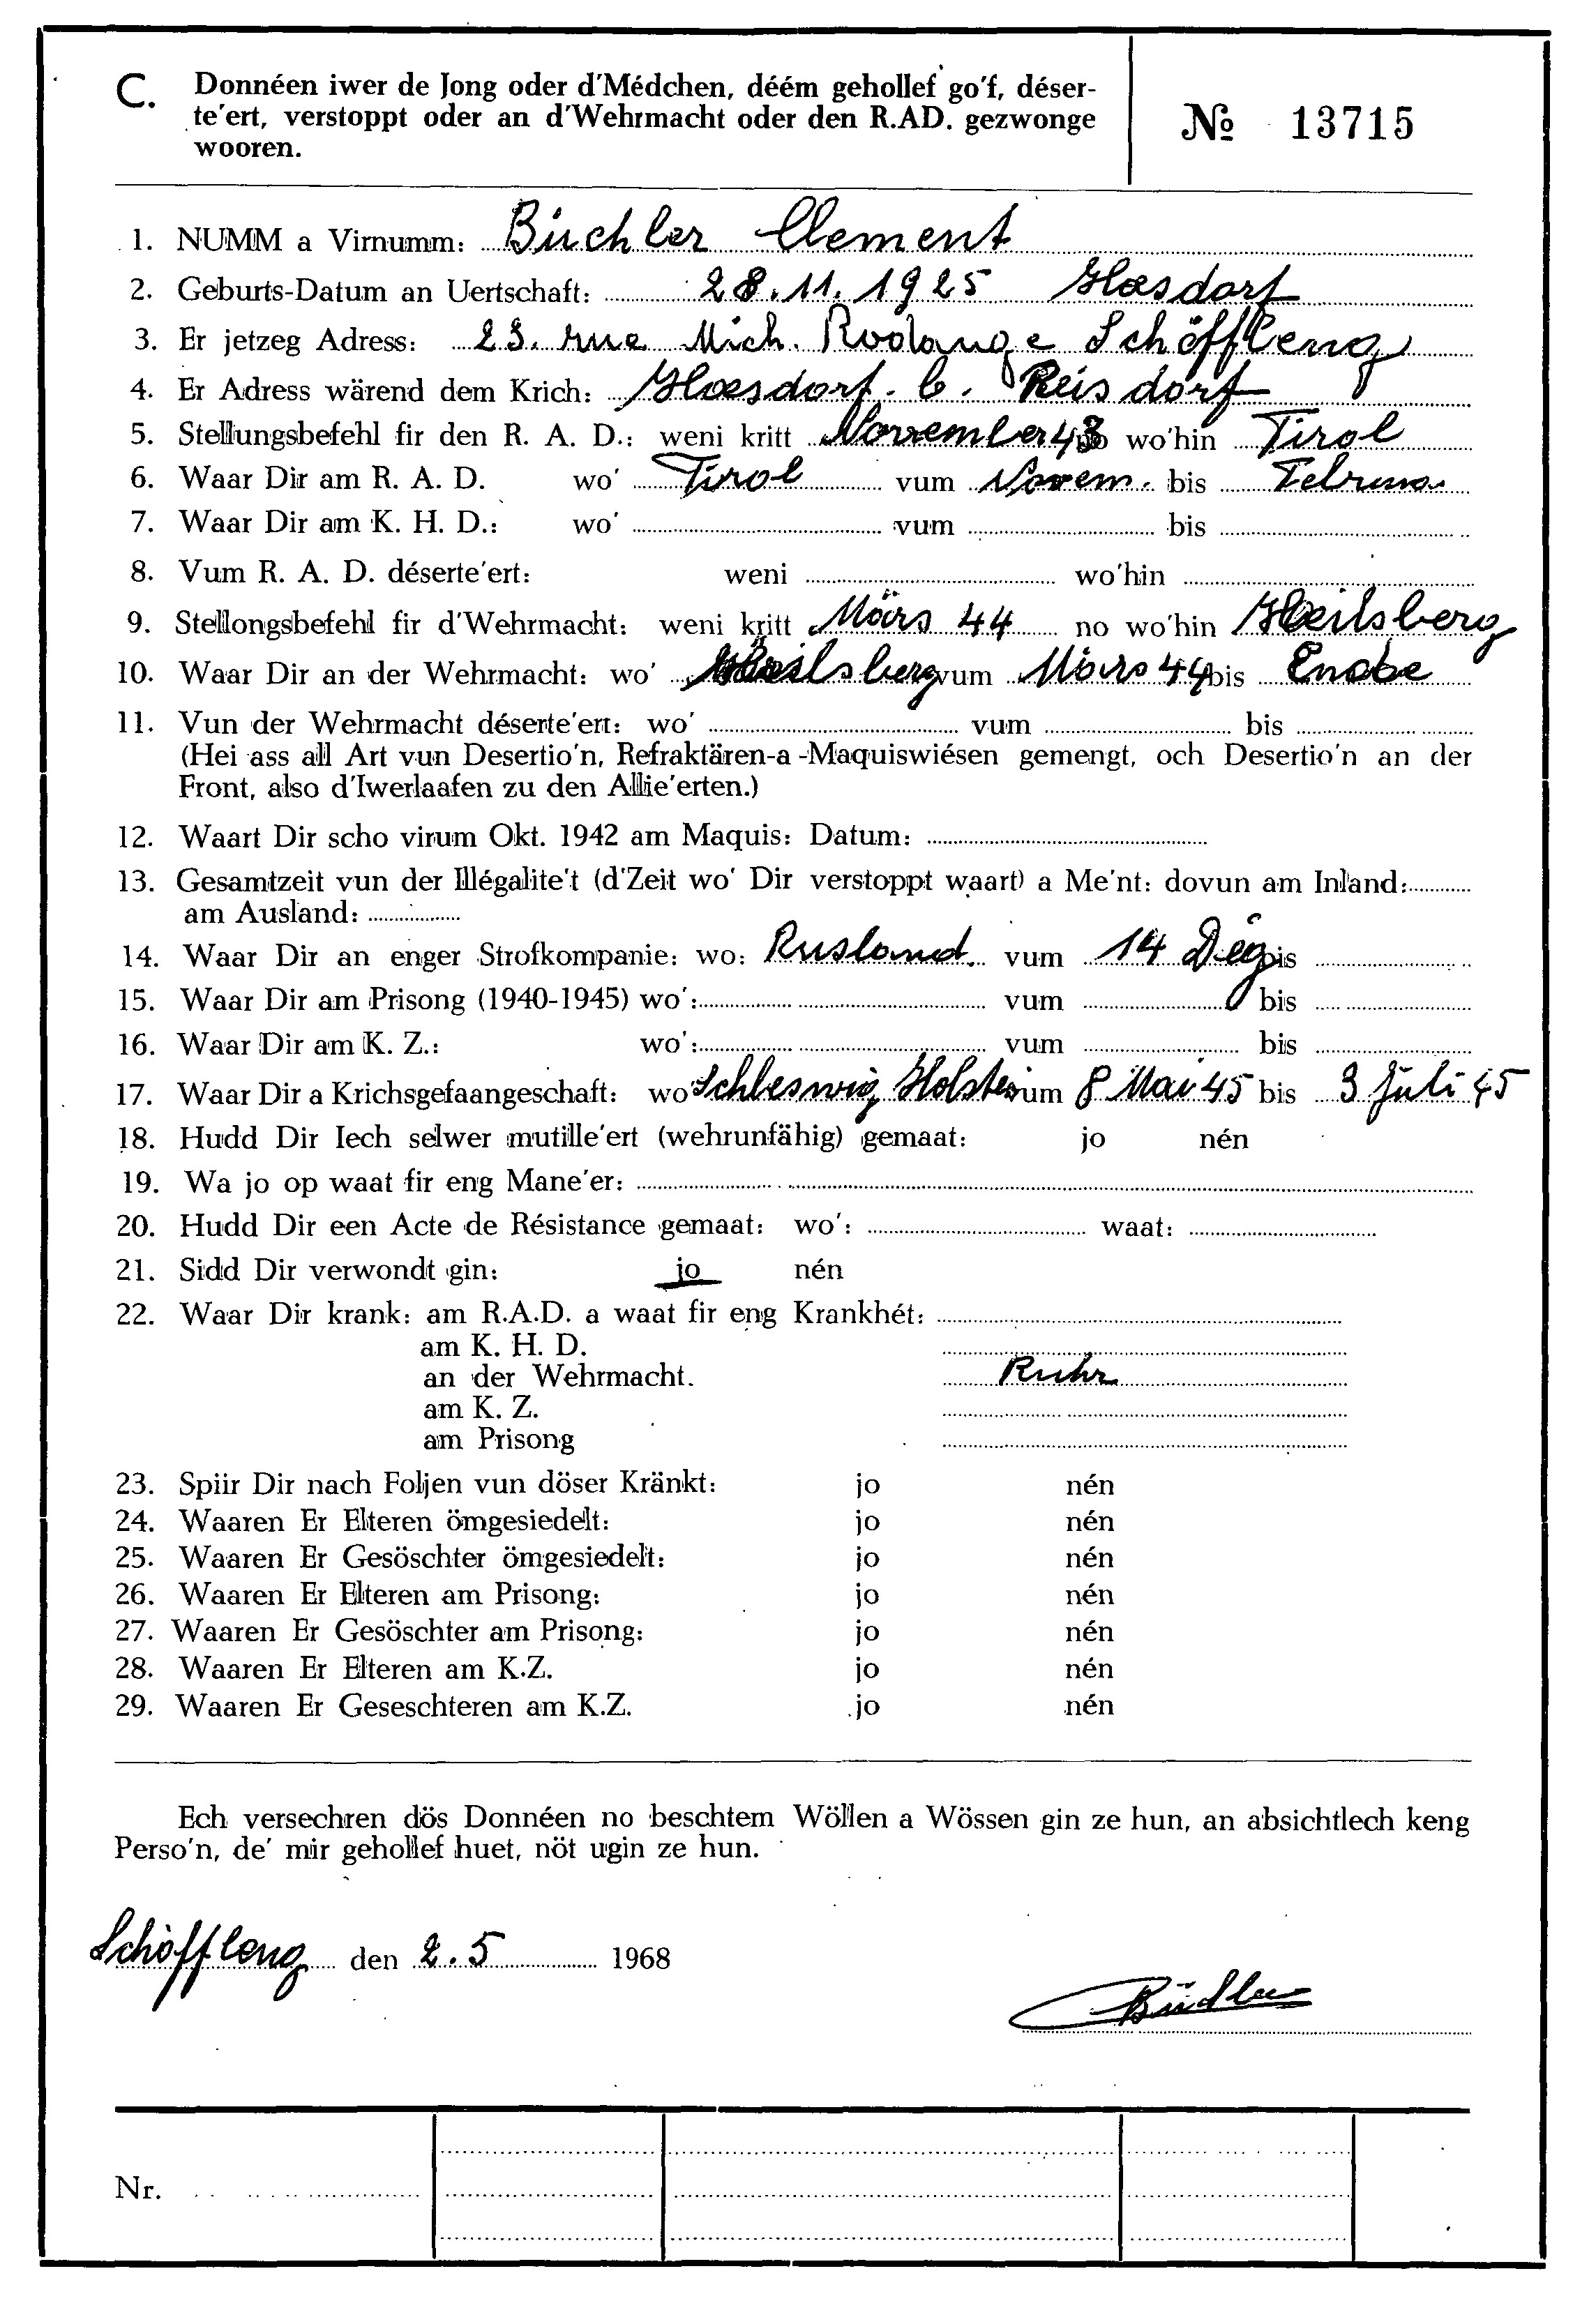 C. Donnéen iwer de Jong oder d'Médchen, déém gehollef go'f, déser-
te'ert, verstoppt oder an d'Wehrmacht oder den R.AD. gezwonge
wooren.
№ 13715
1. NUMM a Virnumm: Büchler Clement
2. Geburts-Datum an Uertschaft: 28.11.1925 Hoesdorf
3. Er jetzeg Adress: 23. rue Mich. Rodange Schöffleng
4. Er Adress wärend dem Krich: Hoesdorf. b. Reisdorf
5. Stellungsbefehl fir den R. A. D.: weni kritt November 43 no wo'hin Tirol
6. Waar Dir am R. A. D. wo' Tirol vum Novem. bis Februar
7. Waar Dir am K. H. D.: wo' vum bis
8. Vum R. A. D. déserte'ert: weni wo'hin
9. Stellongsbefehl fir d'Wehrmacht: weni kritt März 44 no wo'hin Heilsberg
10. Waar Dir an der Wehrmacht: wo' Heilsberg vum März 44 bis Ende
11. Vun der Wehrmacht déserte'ert: wo' vum bis
(Hei ass all Art vun Desertio'n, Refraktären-a-Maquiswiésen gemengt, och Desertio'n an der
Front, also d'Iwerlaafen zu den Allie'erten.)
12. Waart Dir scho virum Okt. 1942 am Maquis: Datum:
13. Gesamtzeit vun der Illégalite't (d'Zeit wo' Dir verstoppt waart) a Me'nt: dovun am Inland:
am Ausland:
14. Waar Dir an enger Strofkompanie: wo: Rusland. vum 14 Deg bis
15. Waar Dir am Prisong (1940-1945) wo': vum bis
16. Waar Dir am K. Z.: wo': vum bis
17. Waar Dir a Krichsgefaangeschaft: wo' Schleswig Holstein vum 8 Mai 45 bis 3 Juli 45
18. Hudd Dir Iech selwer mutille'ert (wehrunfähig) gemaat: jo nén
19. Wa jo op waat fir eng Mane'er:
20. Hudd Dir een Acte de Résistance gemaat: wo': waat:
21. Sidd Dir verwondt gin: jo nén
22. Waar Dir krank: am R.A.D. a waat fir eng Krankhét:
am K. H. D.
an der Wehrmacht. Ruhr
am K. Z.
am Prisong
23. Spiir Dir nach Foljen vun döser Kränkt: jo nén
24. Waaren Er Elteren ömgesiedelt: jo nén
25. Waaren Er Gesöschter ömgesiedelt: jo nén
26. Waaren Er Elteren am Prisong: jo nén
27. Waaren Er Gesöschter am Prisong: jo nén
28. Waaren Er Elteren am K.Z. jo nén
29. Waaren Er Geseschteren am K.Z. jo nén
Ech versechren dös Donnéen no beschtem Wöllen a Wössen gin ze hun, an absichtlech keng
Perso'n, de' mir gehollef huet, nöt ugin ze hun.
Schöffleng den 2.5 1968
Büchler
Nr.